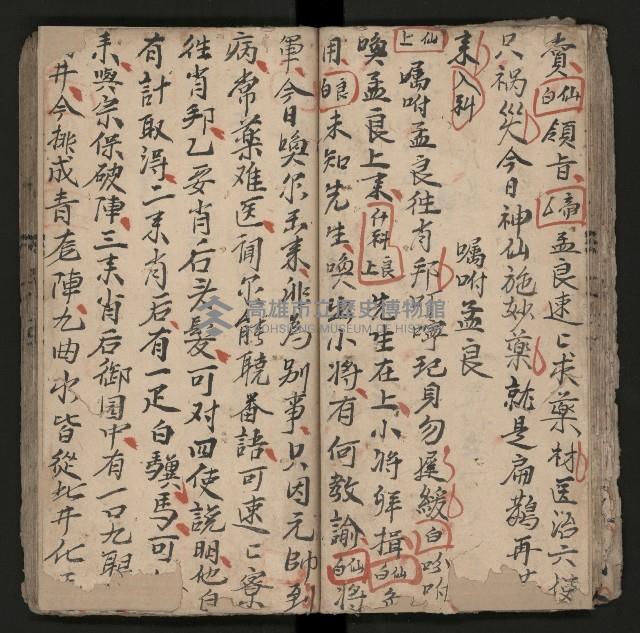 賫白仙領旨𠆤帝孟良速亡求藥材医治六使
只祸災今日神仙施妙藥就是扁鵲再
来入科
囑咐孟良
上仙囑咐孟良往肖邦蟬玘身勿遲緩白吩咐
喚孟良上来介科上良先生在上小将拜揖白仙孟
用白良未知先生喚小将有何教諭白仙将
軍今日喚尔出来非為別事只因元帥到
病常薬难医闻尔能聴番語可速亡寮
徃肖邦乙要肖后头髮可对四使說明他自
有計取淂二来肖后有一疋白驥馬可
来與宗保破陣三来肖后御园中有一口九眼
井今挑成青竜陣九曲水皆從此井化
高雄市立歷史博物館
KAOHSIUNG MUSEUM OF HISTORY